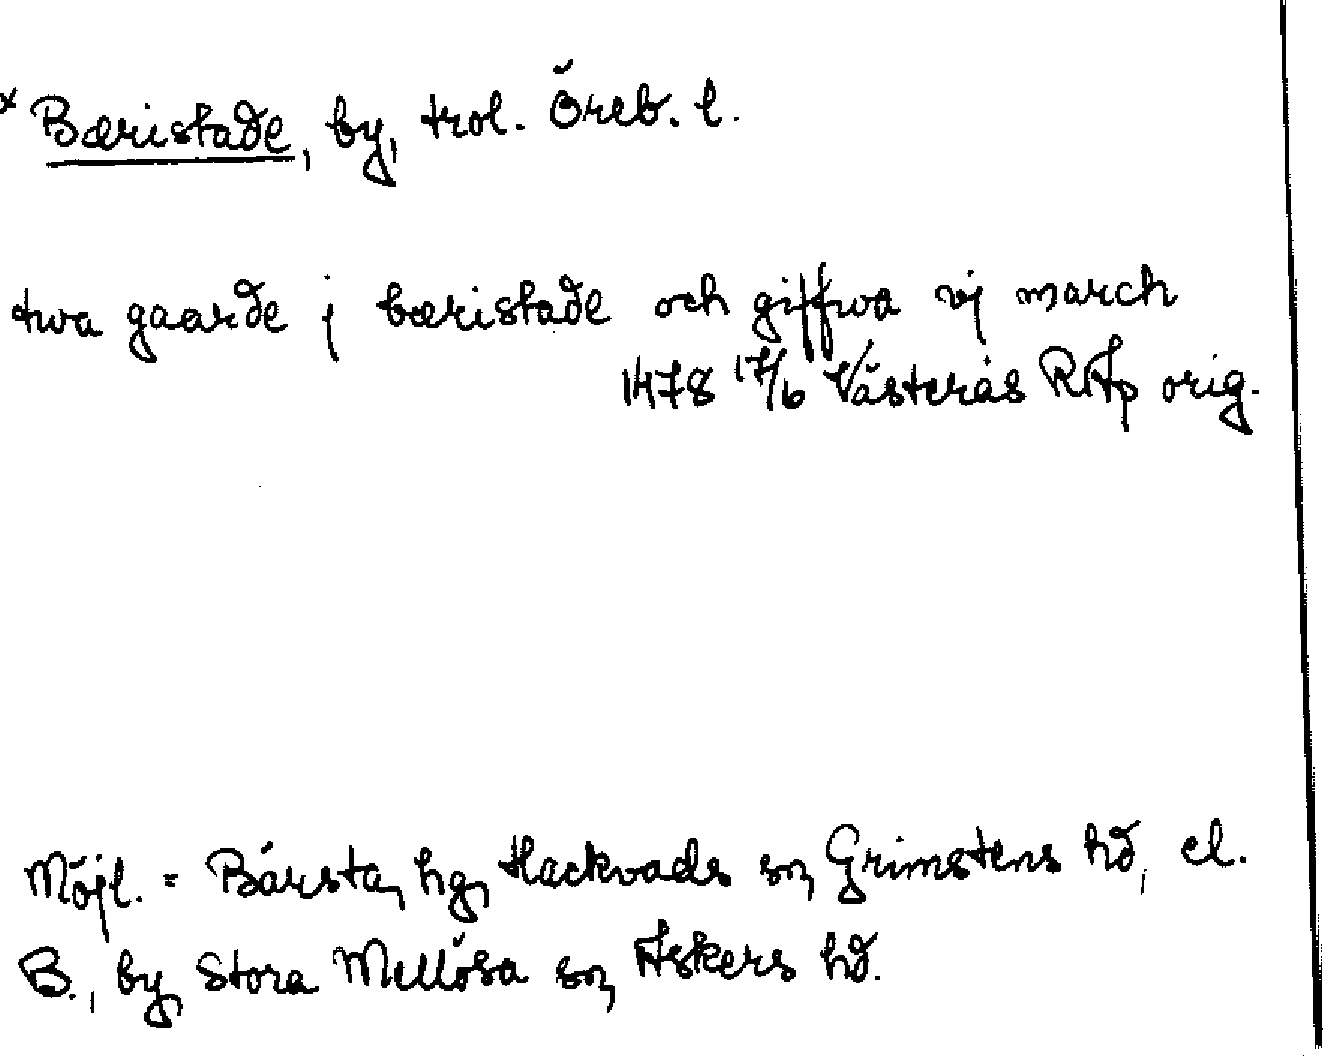 x Bæristade, by, trol. Öreb. l.
twa gaarde j bæristade och giffwa vj march
1478 17/6 Västerås RAp orig.
Möjl. = Bärsta, hg, Hackvads sn, Grimstens hd, el.
B., by, Stora Mellösa sn, Askers hd.